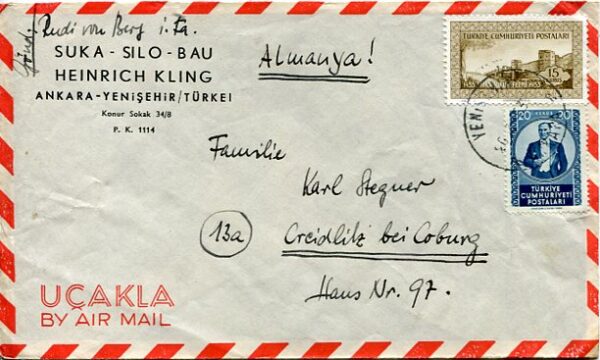 Rudi von Berg i. Fa.
SUKA - SILO - BAU
HEINRICH KLING
ANKARA-YENİŞEHİR/TÜRKEI
Konur Sokak 34/8
P. K. 1114
Almanya!
TÜRKİYE CUMHURİYETİ POSTALARI
15
1453
1953
20 20
TÜRKİYE
CUMHURİYETİ
POSTALARI
YENİŞ
Familie
Karl Stegner
13a
Creidlitz bei Coburg
Haus Nr. 97.
UÇAKLA
BY AIR MAIL